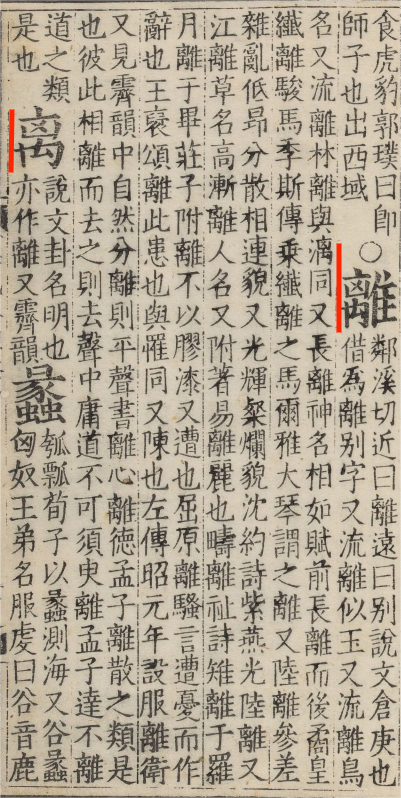 食虎豹郭璞曰即
師子也出西域
○離
鄰溪切近曰離遠曰别說文倉庚也
借爲離别字又流離似玉又流離鳥
名又流離林離與漓同又長離神名相如賦前長離而後矞皇
纖離駿馬季斯傳乘纖離之馬爾雅大琴謂之離又陸離參差
雜亂低昂分散相連貌又光輝粲爛貌沈約詩紫燕光陸離又
江離草名高漸離人名又附著易離麗也疇離祉詩雉離于羅
月離于畢莊子附離不以膠漆又遭也屈原離騷言遭憂而作
辭也王襃頌離此患也與罹同又陳也左傳昭元年設服離衛
又見霽韻中自然分離則平聲書離心離德孟子離散之類是
也彼此相離而去之則去聲中庸道不可須臾離孟子達不離
道之類
是也
离
說文卦名明也
亦作離又霽韻
蠡
瓠瓢荀子以蠡測海又谷蠡
匈奴王弟名服虔曰谷音鹿